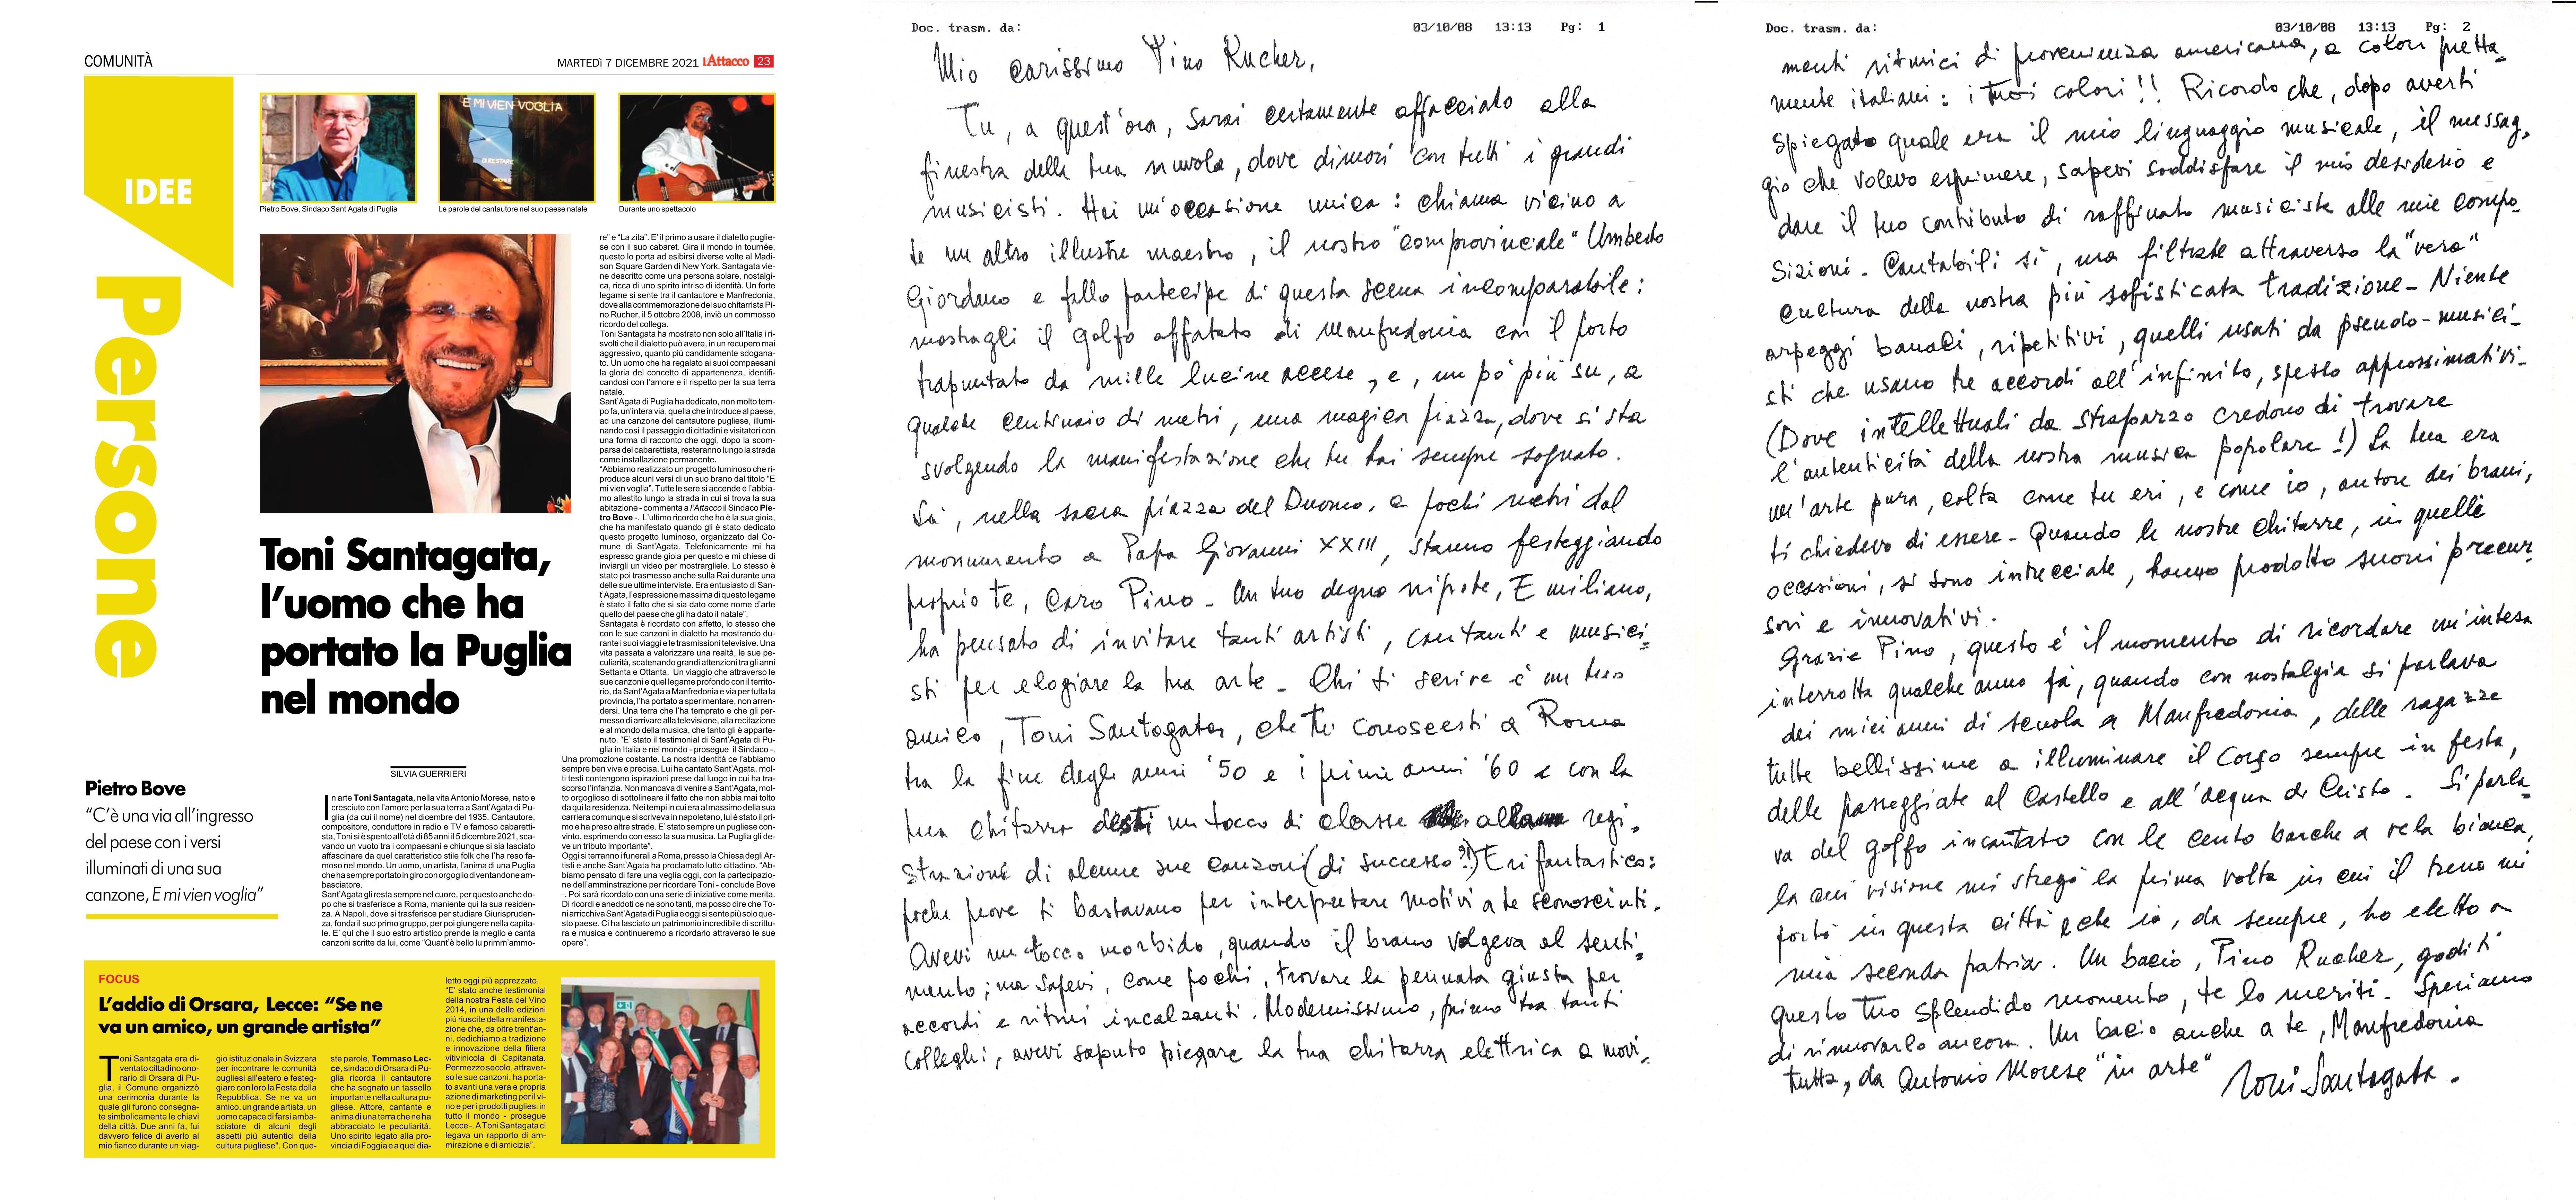 COMUNITÀ
MARTEDÌ 7 DICEMBRE 2021 l'Attacco 23
IDEE
Persone
E MI VIEN VOGLIA
DI RESTARE
Pietro Bove, Sindaco Sant'Agata di Puglia
Le parole del cantautore nel suo paese natale
Durante uno spettacolo
Toni Santagata,
l'uomo che ha
portato la Puglia
nel mondo
Pietro Bove
“C'è una via all'ingresso
del paese con i versi
illuminati di una sua
canzone, E mi vien voglia”
SILVIA GUERRIERI
In arte Toni Santagata, nella vita Antonio Morese, nato e
cresciuto con l'amore per la sua terra a Sant'Agata di Pu-
glia (da cui il nome) nel dicembre del 1935. Cantautore,
compositore, conduttore in radio e TV e famoso cabaretti-
sta, Toni si è spento all'età di 85 anni il 5 dicembre 2021, sca-
vando un vuoto tra i compaesani e chiunque si sia lasciato
affascinare da quel caratteristico stile folk che l'ha reso fa-
moso nel mondo. Un uomo, un artista, l'anima di una Puglia
che ha sempre portato in giro con orgoglio diventandone am-
basciatore.
Sant'Agata gli resta sempre nel cuore, per questo anche do-
po che si trasferisce a Roma, maniente qui la sua residen-
za. A Napoli, dove si trasferisce per studiare Giurispruden-
za, fonda il suo primo gruppo, per poi giungere nella capita-
le. E' qui che il suo estro artistico prende la meglio e canta
canzoni scritte da lui, come “Quant'è bello lu primm'ammo-
re” e “La zita”. E' il primo a usare il dialetto puglie-
se con il suo cabaret. Gira il mondo in tournée,
questo lo porta ad esibirsi diverse volte al Madi-
son Square Garden di New York. Santagata vie-
ne descritto come una persona solare, nostalgi-
ca, ricca di uno spirito intriso di identità. Un forte
legame si sente tra il cantautore e Manfredonia,
dove alla commemorazione del suo chitarrista Pi-
no Rucher, il 5 ottobre 2008, inviò un commosso
ricordo del collega.
Toni Santagata ha mostrato non solo all'Italia i ri-
svolti che il dialetto può avere, in un recupero mai
aggressivo, quanto più candidamente sdogana-
to. Un uomo che ha regalato ai suoi compaesani
la gloria del concetto di appartenenza, identifi-
candosi con l'amore e il rispetto per la sua terra
natale.
Sant'Agata di Puglia ha dedicato, non molto tem-
po fa, un'intera via, quella che introduce al paese,
ad una canzone del cantautore pugliese, illumi-
nando così il passaggio di cittadini e visitatori con
una forma di racconto che oggi, dopo la scom-
parsa del cabarettista, resteranno lungo la strada
come installazione permanente.
“Abbiamo realizzato un progetto luminoso che ri-
produce alcuni versi di un suo brano dal titolo “E
mi vien voglia”. Tutte le sere si accende e l'abbia-
mo allestito lungo la strada in cui si trova la sua
abitazione - commenta a l'Attacco il Sindaco Pie-
tro Bove -. L'ultimo ricordo che ho è la sua gioia,
che ha manifestato quando gli è stato dedicato
questo progetto luminoso, organizzato dal Co-
mune di Sant'Agata. Telefonicamente mi ha
espresso grande gioia per questo e mi chiese di
inviargli un video per mostrargliele. Lo stesso è
stato poi trasmesso anche sulla Rai durante una
delle sue ultime interviste. Era entusiasto di San-
t'Agata, l'espressione massima di questo legame
è stato il fatto che si sia dato come nome d'arte
quello del paese che gli ha dato il natale”.
Santagata è ricordato con affetto, lo stesso che
con le sue canzoni in dialetto ha mostrando du-
rante i suoi viaggi e le trasmissioni televisive. Una
vita passata a valorizzare una realtà, le sue pe-
culiarità, scatenando grandi attenzioni tra gli anni
Settanta e Ottanta. Un viaggio che attraverso le
sue canzoni e quel legame profondo con il territo-
rio, da Sant'Agata a Manfredonia e via per tutta la
provincia, l'ha portato a sperimentare, non arren-
dersi. Una terra che l'ha temprato e che gli per-
messo di arrivare alla televisione, alla recitazione
e al mondo della musica, che tanto gli è apparte-
nuto. “E' stato il testimonial di Sant'Agata di Pu-
glia in Italia e nel mondo - prosegue il Sindaco -.
Una promozione costante. La nostra identità ce l'abbiamo
sempre ben viva e precisa. Lui ha cantato Sant'Agata, mol-
ti testi contengono ispirazioni prese dal luogo in cui ha tra-
scorso l'infanzia. Non mancava di venire a Sant'Agata, mol-
to orgoglioso di sottolineare il fatto che non abbia mai tolto
da qui la residenza. Nei tempi in cui era al massimo della sua
carriera comunque si scriveva in napoletano, lui è stato il pri-
mo e ha preso altre strade. E' stato sempre un pugliese con-
vinto, esprimendo con esso la sua musica. La Puglia gli de-
ve un tributo importante”.
Oggi si terranno i funerali a Roma, presso la Chiesa degli Ar-
tisti e anche Sant'Agata ha proclamato lutto cittadino. “Ab-
biamo pensato di fare una veglia oggi, con la partecipazio-
ne dell'amministrazione per ricordare Toni - conclude Bove
-. Poi sarà ricordato con una serie di iniziative come merita.
Di ricordi e aneddoti ce ne sono tanti, ma posso dire che To-
ni arricchiva Sant'Agata di Puglia e oggi si sente più solo que-
sto paese. Ci ha lasciato un patrimonio incredibile di scrittu-
ra e musica e continueremo a ricordarlo attraverso le sue
opere”.
FOCUS
L'addio di Orsara, Lecce: “Se ne
va un amico, un grande artista”
Toni Santagata era di-
ventato cittadino ono-
rario di Orsara di Pu-
glia, il Comune organizzò
una cerimonia durante la
quale gli furono consegna-
te simbolicamente le chiavi
della città. Due anni fa, fui
davvero felice di averlo al
mio fianco durante un viag-
gio istituzionale in Svizzera
per incontrare le comunità
pugliesi all'estero e festeg-
giare con loro la Festa della
Repubblica. Se ne va un
amico, un grande artista, un
uomo capace di farsi amba-
sciatore di alcuni degli
aspetti più autentici della
cultura pugliese”. Con que-
ste parole, Tommaso Lec-
ce, sindaco di Orsara di Pu-
glia ricorda il cantautore
che ha segnato un tassello
importante nella cultura pu-
gliese. Attore, cantante e
anima di una terra che ne ha
abbracciato le peculiarità.
Uno spirito legato alla pro-
vincia di Foggia e a quel dia-
letto oggi più apprezzato.
“E' stato anche testimonial
della nostra Festa del Vino
2014, in una delle edizioni
più riuscite della manifesta-
zione che, da oltre trent'an-
ni, dedichiamo a tradizione
e innovazione della filiera
vitivinicola di Capitanata.
Per mezzo secolo, attraver-
so le sue canzoni, ha porta-
to avanti una vera e propria
azione di marketing per il vi-
no e per i prodotti pugliesi in
tutto il mondo - prosegue
Lecce -. A Toni Santagata ci
legava un rapporto di am-
mirazione e di amicizia”.
Doc. trasm. da: 03/10/08 13:13 Pg: 1
Mio carissimo Pino Rucher,
Tu, a quest'ora, sarai certamente affacciato alla
finestra della tua nuvola, dove dimori con tutti i grandi
musicisti. Hai un'occasione unica: chiama vicino a
te un altro illustre maestro, il nostro "comprovinciale" Umberto
Giordano e fallo partecipe di questa scena incomparabile:
mostragli il golfo affatato di Manfredonia con il porto
trapuntato da mille lucine accese, e, un po' più su, a
qualche centinaio di metri, una magica piazza, dove si sta
svolgendo la manifestazione che tu hai sempre sognato.
Là, nella sacra piazza del Duomo, a pochi metri dal
monumento a Papa Giovanni XXIII, stanno festeggiando
proprio te, caro Pino - Un tuo degno nipote, Emiliano,
ha pensato di invitare tanti artisti, cantanti e musici-
sti per elogiare la tua arte - Chi ti scrive è un tuo
amico, Toni Santagata, che tu conoscesti a Roma
tra la fine degli anni '50 e i primi anni '60 e con la
tua chitarra desti un tocco di classe alla regi-
strazione di alcune sue canzoni (di successo?!) Eri fantastico:
poche prove ti bastavano per interpretare motivi a te sconosciuti.
Avevi un tocco morbido, quando il brano volgeva al senti-
mento; ma sapevi, come pochi, trovare la pennata giusta per
accordi e ritmi incalzanti. Modernissimo, primo tra tanti
colleghi, avevi saputo piegare la tua chitarra elettrica a movi-
Doc. trasm. da: 03/10/08 13:13 Pg: 2
menti ritmici di provenienza americana, a colori pretta-
mente italiani: i tuoi colori!! Ricordo che, dopo averti
spiegato quale era il mio linguaggio musicale, il messag-
gio che volevo esprimere, sapevi soddisfare il mio desiderio e
dare il tuo contributo di raffinato musicista alle mie compo-
sizioni - Cantabili sì, ma filtrate attraverso la "vera"
cultura della nostra più sofisticata tradizione - Niente
arpeggi banali, ripetitivi, quelli usati da pseudo-musici-
sti che usano tre accordi all'infinito, spesso approssimativi -
(Dove intellettuali da strapazzo credono di trovare
l'autenticità della nostra musica popolare!) La tua era
un'arte pura, colta come tu eri, e come io, autore dei brani,
ti chiedevo di essere - Quando le nostre chitarre, in quelle
occasioni, si sono intrecciate, hanno prodotto suoni precur-
sori e innovativi.
Grazie Pino, questo è il momento di ricordare un'intesa
interrotta qualche anno fa, quando con nostalgia si parlava
dei miei anni di scuola a Manfredonia, delle ragazze
tutte bellissime a illuminare il Corso sempre in festa,
delle passeggiate al Castello e all'acqua di Cristo - Si parla-
va del golfo incantato con le cento barche a vela bianca,
la cui visione mi stregò la prima volta in cui il treno mi
portò in questa città che io, da sempre, ho eletto a
mia seconda patria. Un bacio, Pino Rucher, goditi
questo tuo splendido momento, te lo meriti - Speriamo
di rinnovarlo ancora. Un bacio anche a te, Manfredonia
tutta, da Antonio Morese "in arte"
Toni Santagata.